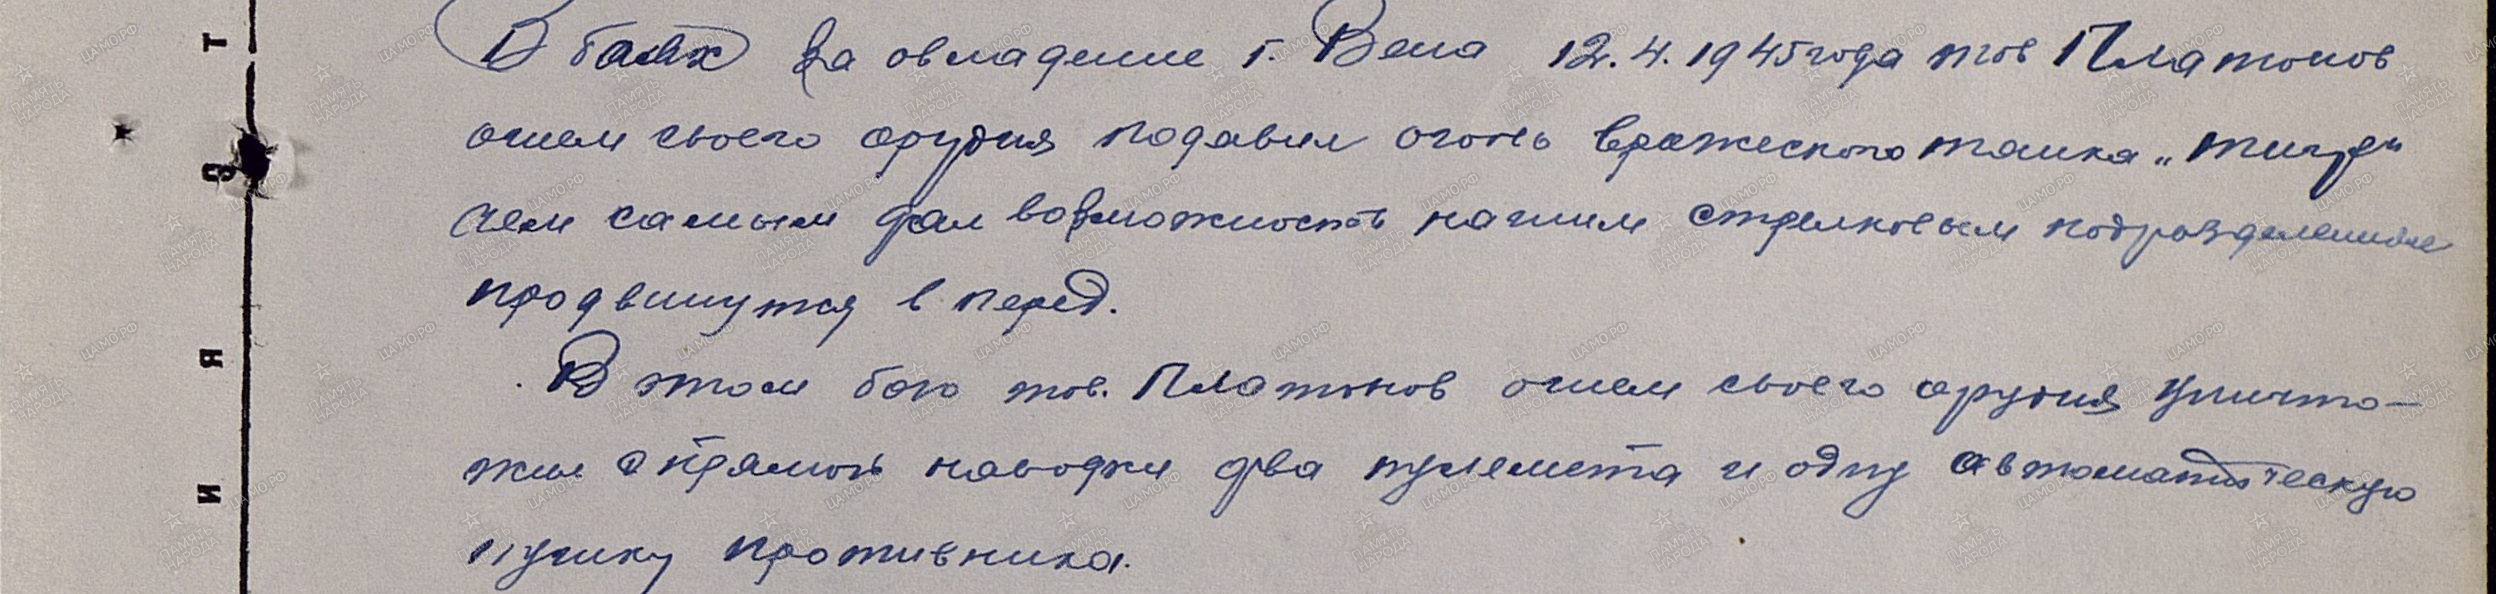 В боях за овладение г. Вена 12.4.1945 года тов Платонов
огнем своего орудия подавил огонь вражеского танка „тигр"
чем самым дал возможность нашим стрелковым подразделениям
продвинутся в перед.
В этом бою тов. Платонов огнем своего орудия уничто-
жил с прямой наводки два пулемета и одну автоматическую
пушку противника.